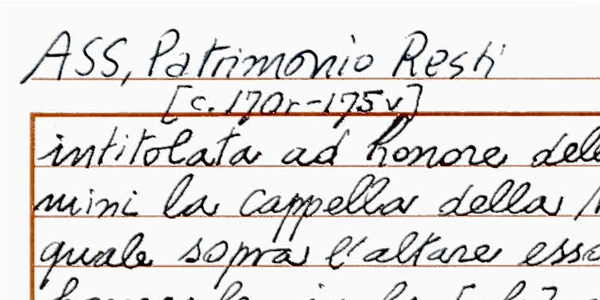 ASS, Patrimonio Resti
[c. 170r-175v]
intitolata ad honore
mini la cappella della
quale sopra l'altare